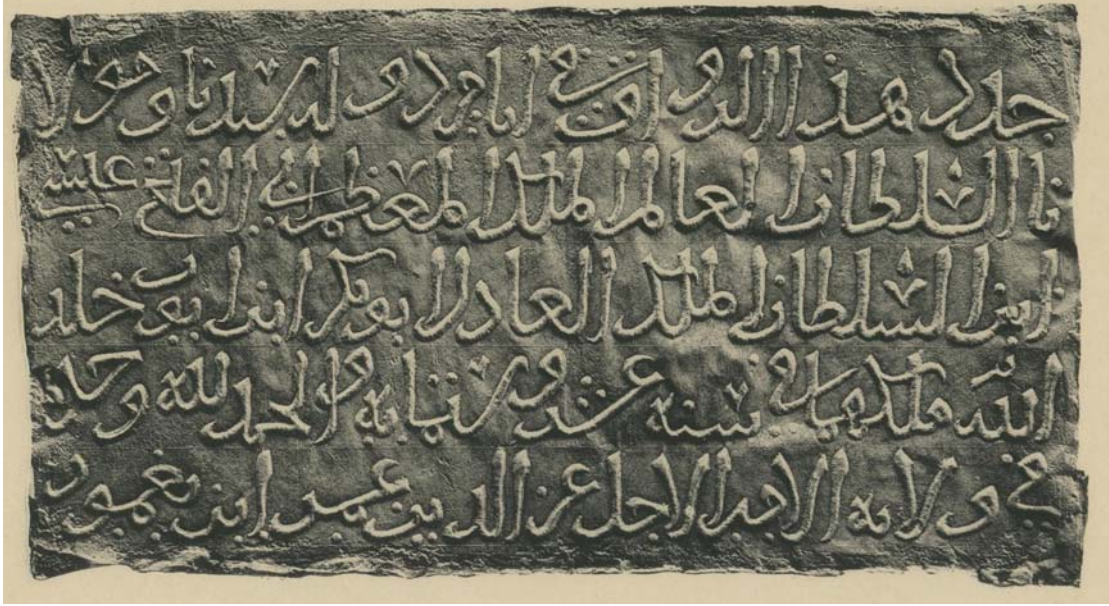 جدد هذا الرواق في ايام دولة سيدنا ومولا
نا السلطان العالم الملك المعظم ابي الفتح عيسى
ابن السلطان الملك العادل ابو بكر ابن ايوب خلد
الله ملكهما في سنة عشر وستماية والحمد لله وحده
في ولاية الامير الاجل عز الدين عمر ابن يغمور